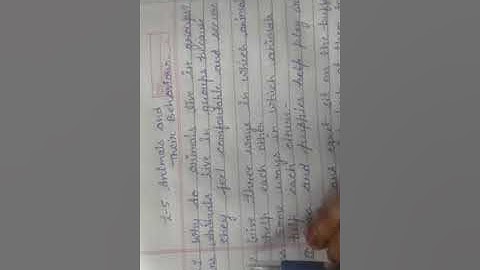 L-5 Animals and
Their Behaviour
Why do animals live in groups?
Animals live in groups because
they feel comfortable and secure
Give three ways in which animals
help each other.
Some ways in which animals
help each other:-
and puppies help play
and egret sit on the